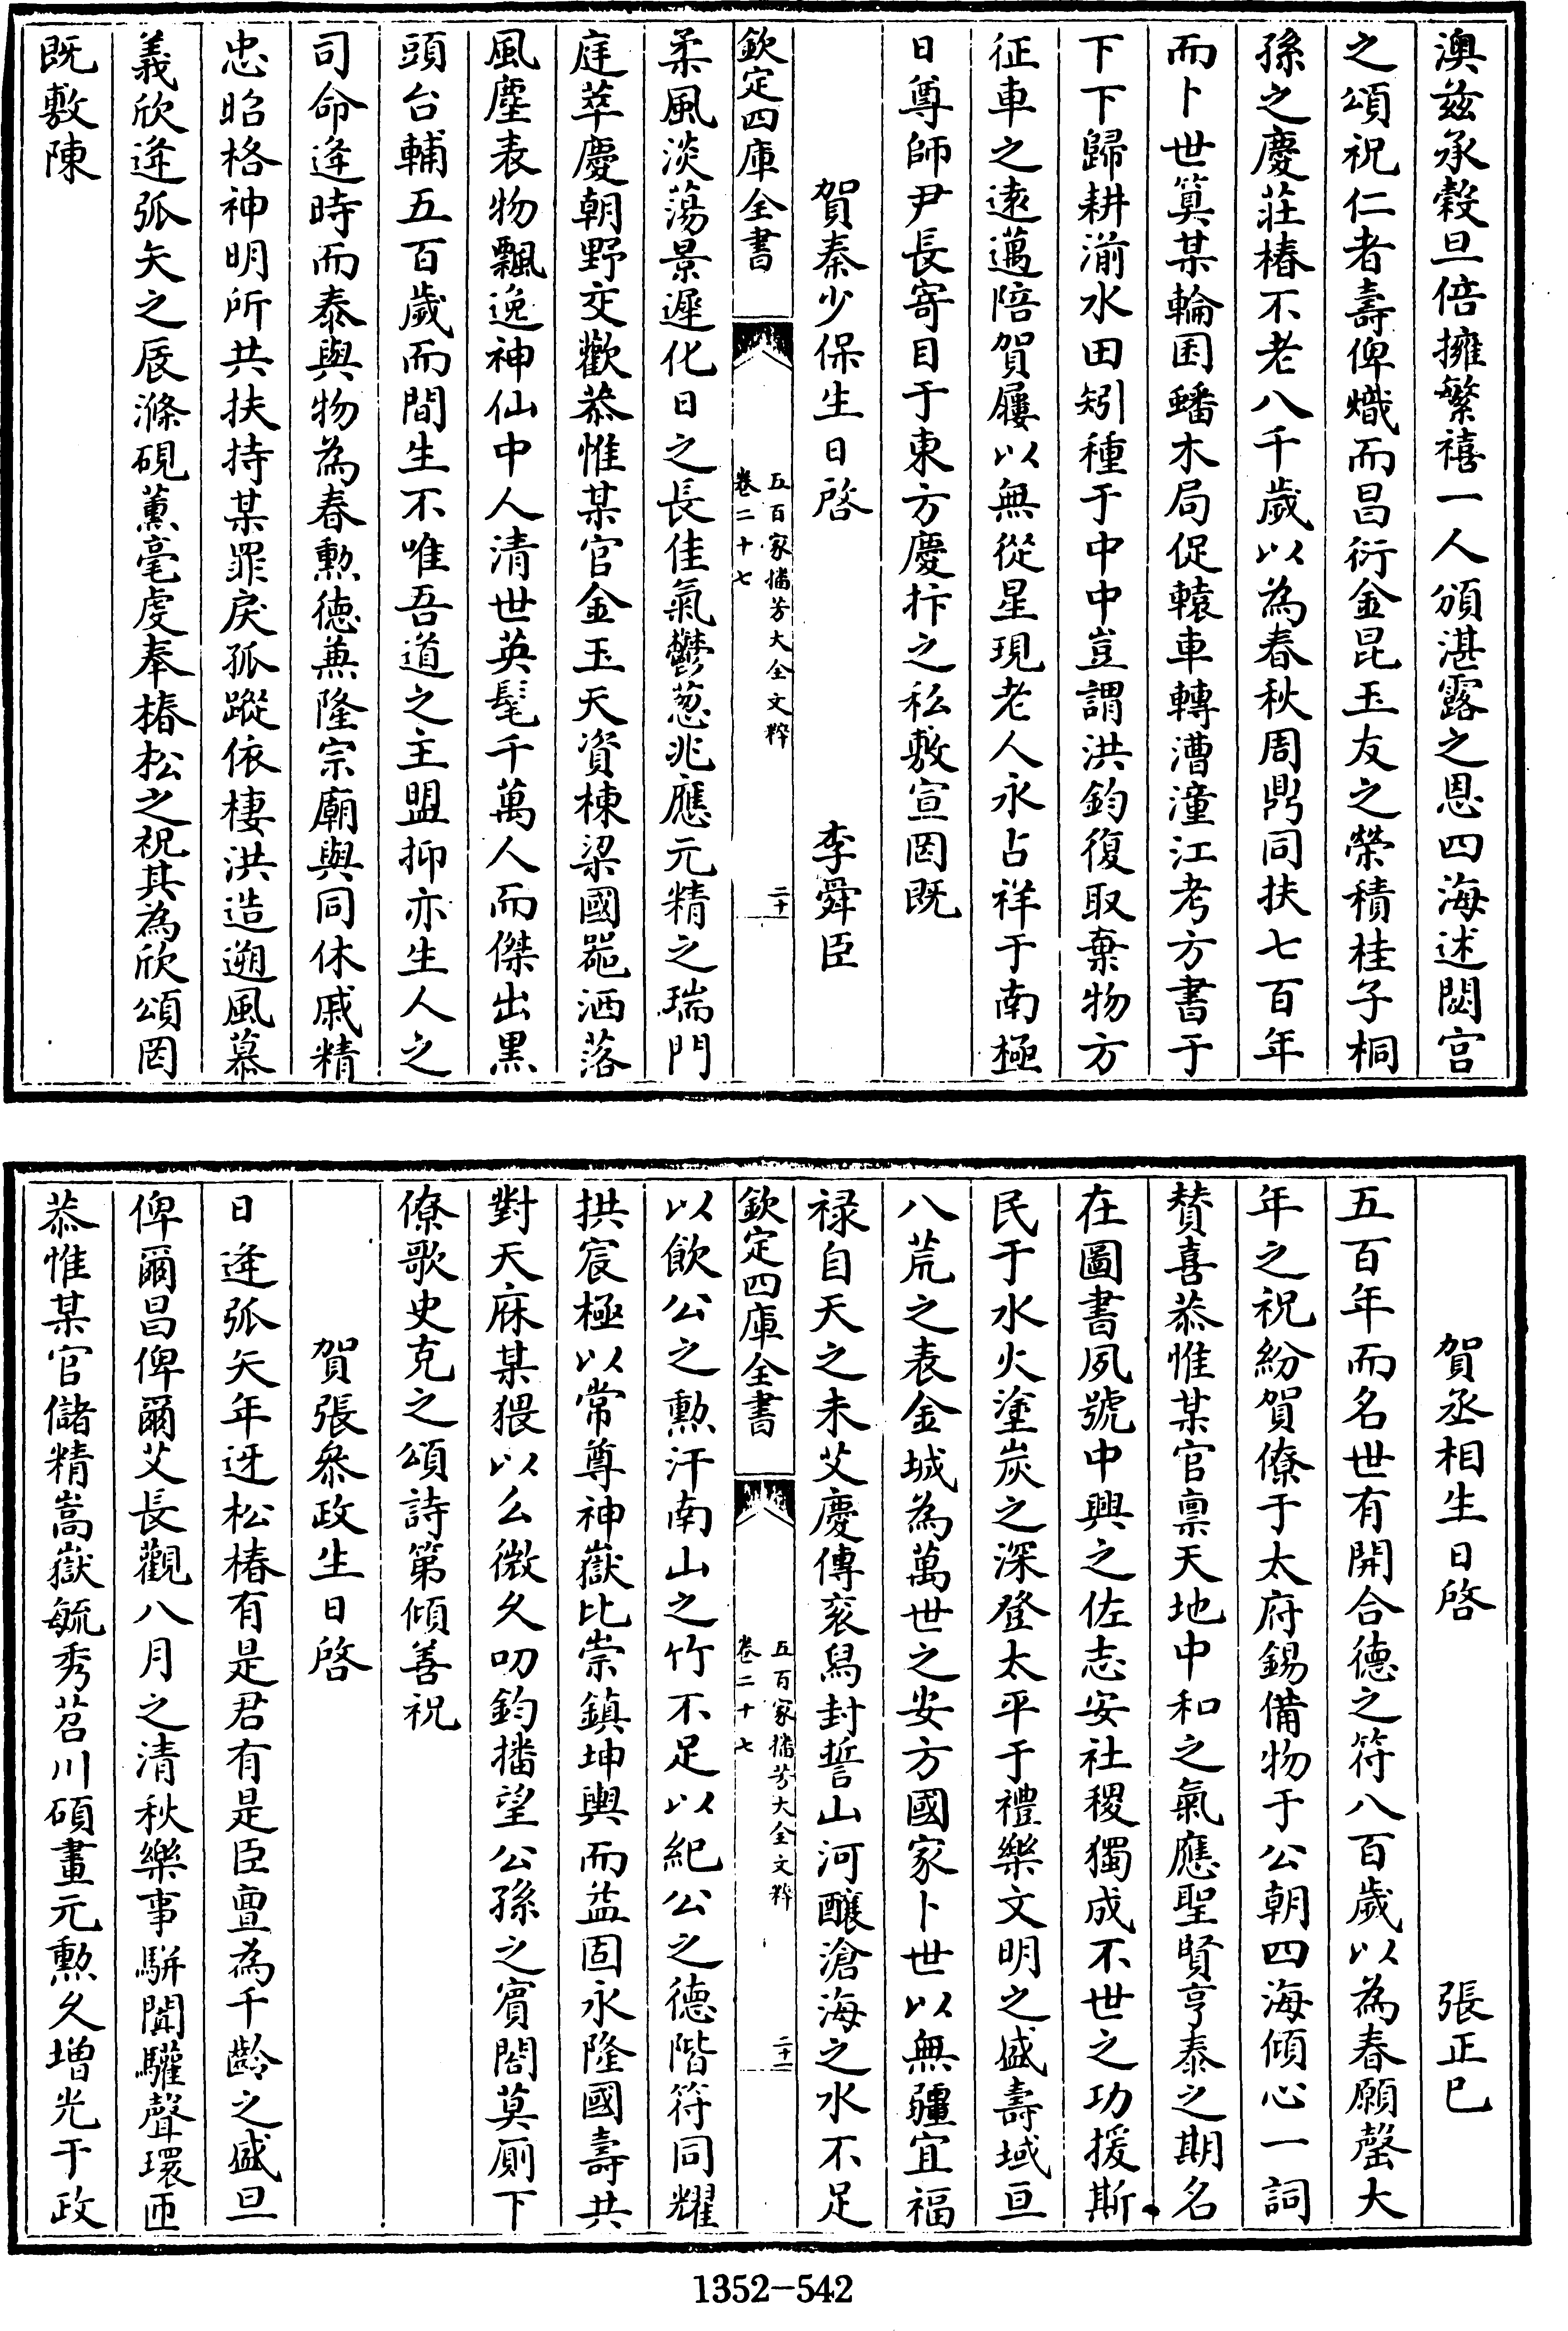 澳兹承穀旦倍擁繁禧一人頒湛露之恩四海述閟宫
之頌祝仁者壽俾熾而昌衍金昆玉友之榮積桂子桐
孫之慶莊椿不老八千歲以為春秋周鼎同扶七百年
而卜世筭某輪囷蟠木局促轅車轉漕潼江考方書于
下下歸耕湔水田矧種于中中豈謂洪鈞復取棄物方
征車之逺邁陪賀屨以無從星現老人永占祥于南極
日尊師尹長寄目于東方慶抃之私敷宣罔既
賀秦少保生日啓 李舜臣
欽定四庫全書 五百家播芳大全文粹 卷二十七 二十
柔風淡蕩景遲化日之長佳氣鬱葱兆應元精之瑞門
庭萃慶朝野交歡恭惟某官金玉天資棟梁國噐洒落
風塵表物飄逸神仙中人清世英髦千萬人而傑出黒
頭台輔五百歲而間生不唯吾道之主盟抑亦生人之
司命逄時而泰與物為春勲徳兼隆宗廟與同休戚精
忠昭格神明所共扶持某罪戾孤蹤依棲洪造遡風慕
義欣逄弧矢之辰滌硯薫毫虔奉椿松之祝其為欣頌罔
既敷陳
賀丞相生日啓 張正己
五百年而名世有開合德之符八百歲以為春願罄大
年之祝紛賀僚于太府錫備物于公朝四海傾心一詞
賛喜恭惟某官禀天地中和之氣應聖賢亨泰之期名
在圖書夙號中興之佐志安社稷獨成不世之功援斯
民于水火塗炭之深登太平于禮樂文明之盛壽域亘
八荒之表金城為萬世之安方國家卜世以無疆宜福
禄自天之未艾慶傳衮舄封誓山河釀滄海之水不足
欽定四庫全書 五百家播芳大全文粹 卷二十七 二十一
以飲公之勲汗南山之竹不足以紀公之德階符同耀
拱宸極以常尊神嶽比崇鎮坤輿而益固永隆國壽共
對天庥某猥以么微久叨鈞播望公孫之賓閤莫厠下
僚歌史克之頌詩第傾善祝
賀張叅政生日啓
日逄弧矢年迓松椿有是君有是臣亶為千齡之盛旦
俾爾昌俾爾艾長觀八月之清秋樂事駢闐驩聲環匝
恭惟某官儲精嵩嶽毓秀苕川碩畫元勲久增光于政
1352-542